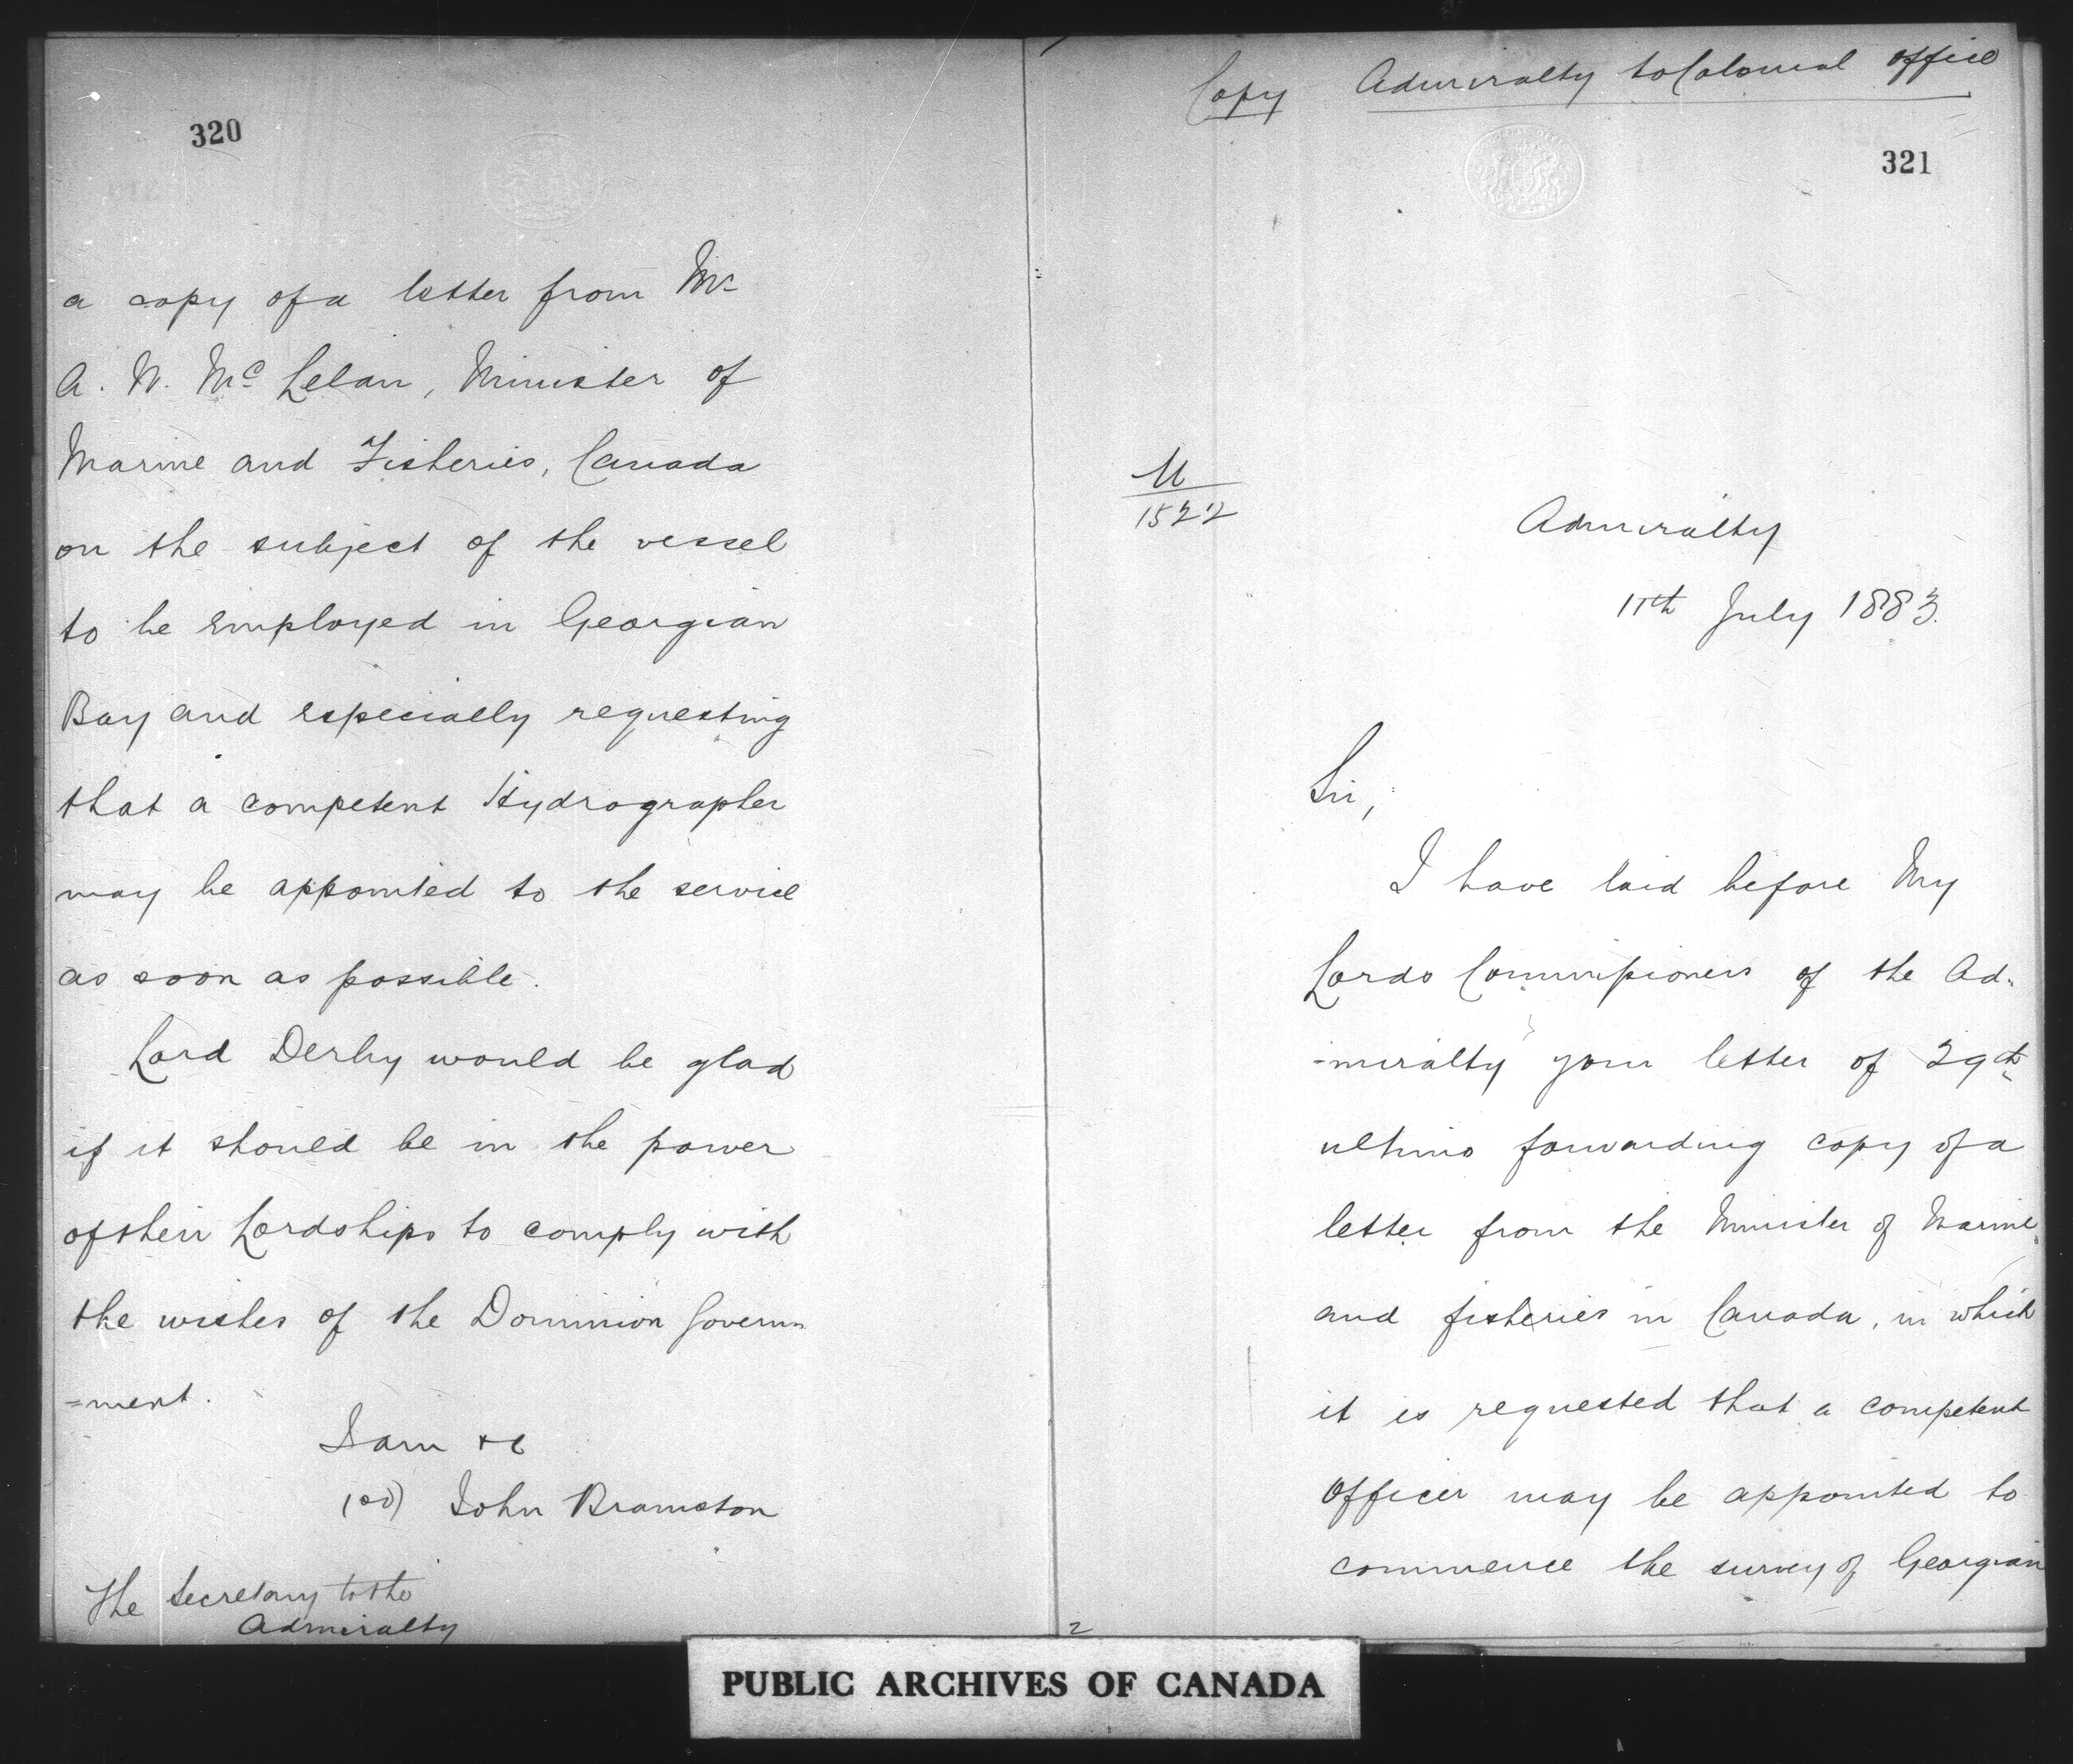 320
a copy of a letter from Mr
A. W. McLelan, Minister of
Marine and Fisheries, Canada
on the subject of the vessel
to be employed in Georgian
Bay and especially requesting
that a competent Hydrographer
may be appointed to the service
as soon as possible.
Lord Derby would be glad
if it should be in the power
of their Lordships to comply with
the wishes of the Dominion Govern
=ment.
I am &c
(sd) John Bramston
The Secretary to the
Admiralty
Copy Admiralty to Colonial Office
321
M
1522
Admiralty
11th July 1883.
Sir,
I have laid before My
Lords Commissioners of the Ad-
-miralty your letter of 29th
ultimo forwarding copy of a
letter from the Minister of Marine
and fisheries in Canada, in which
it is requested that a competent
Officer may be appointed to
commence the survey of Georgian
2
PUBLIC ARCHIVES OF CANADA